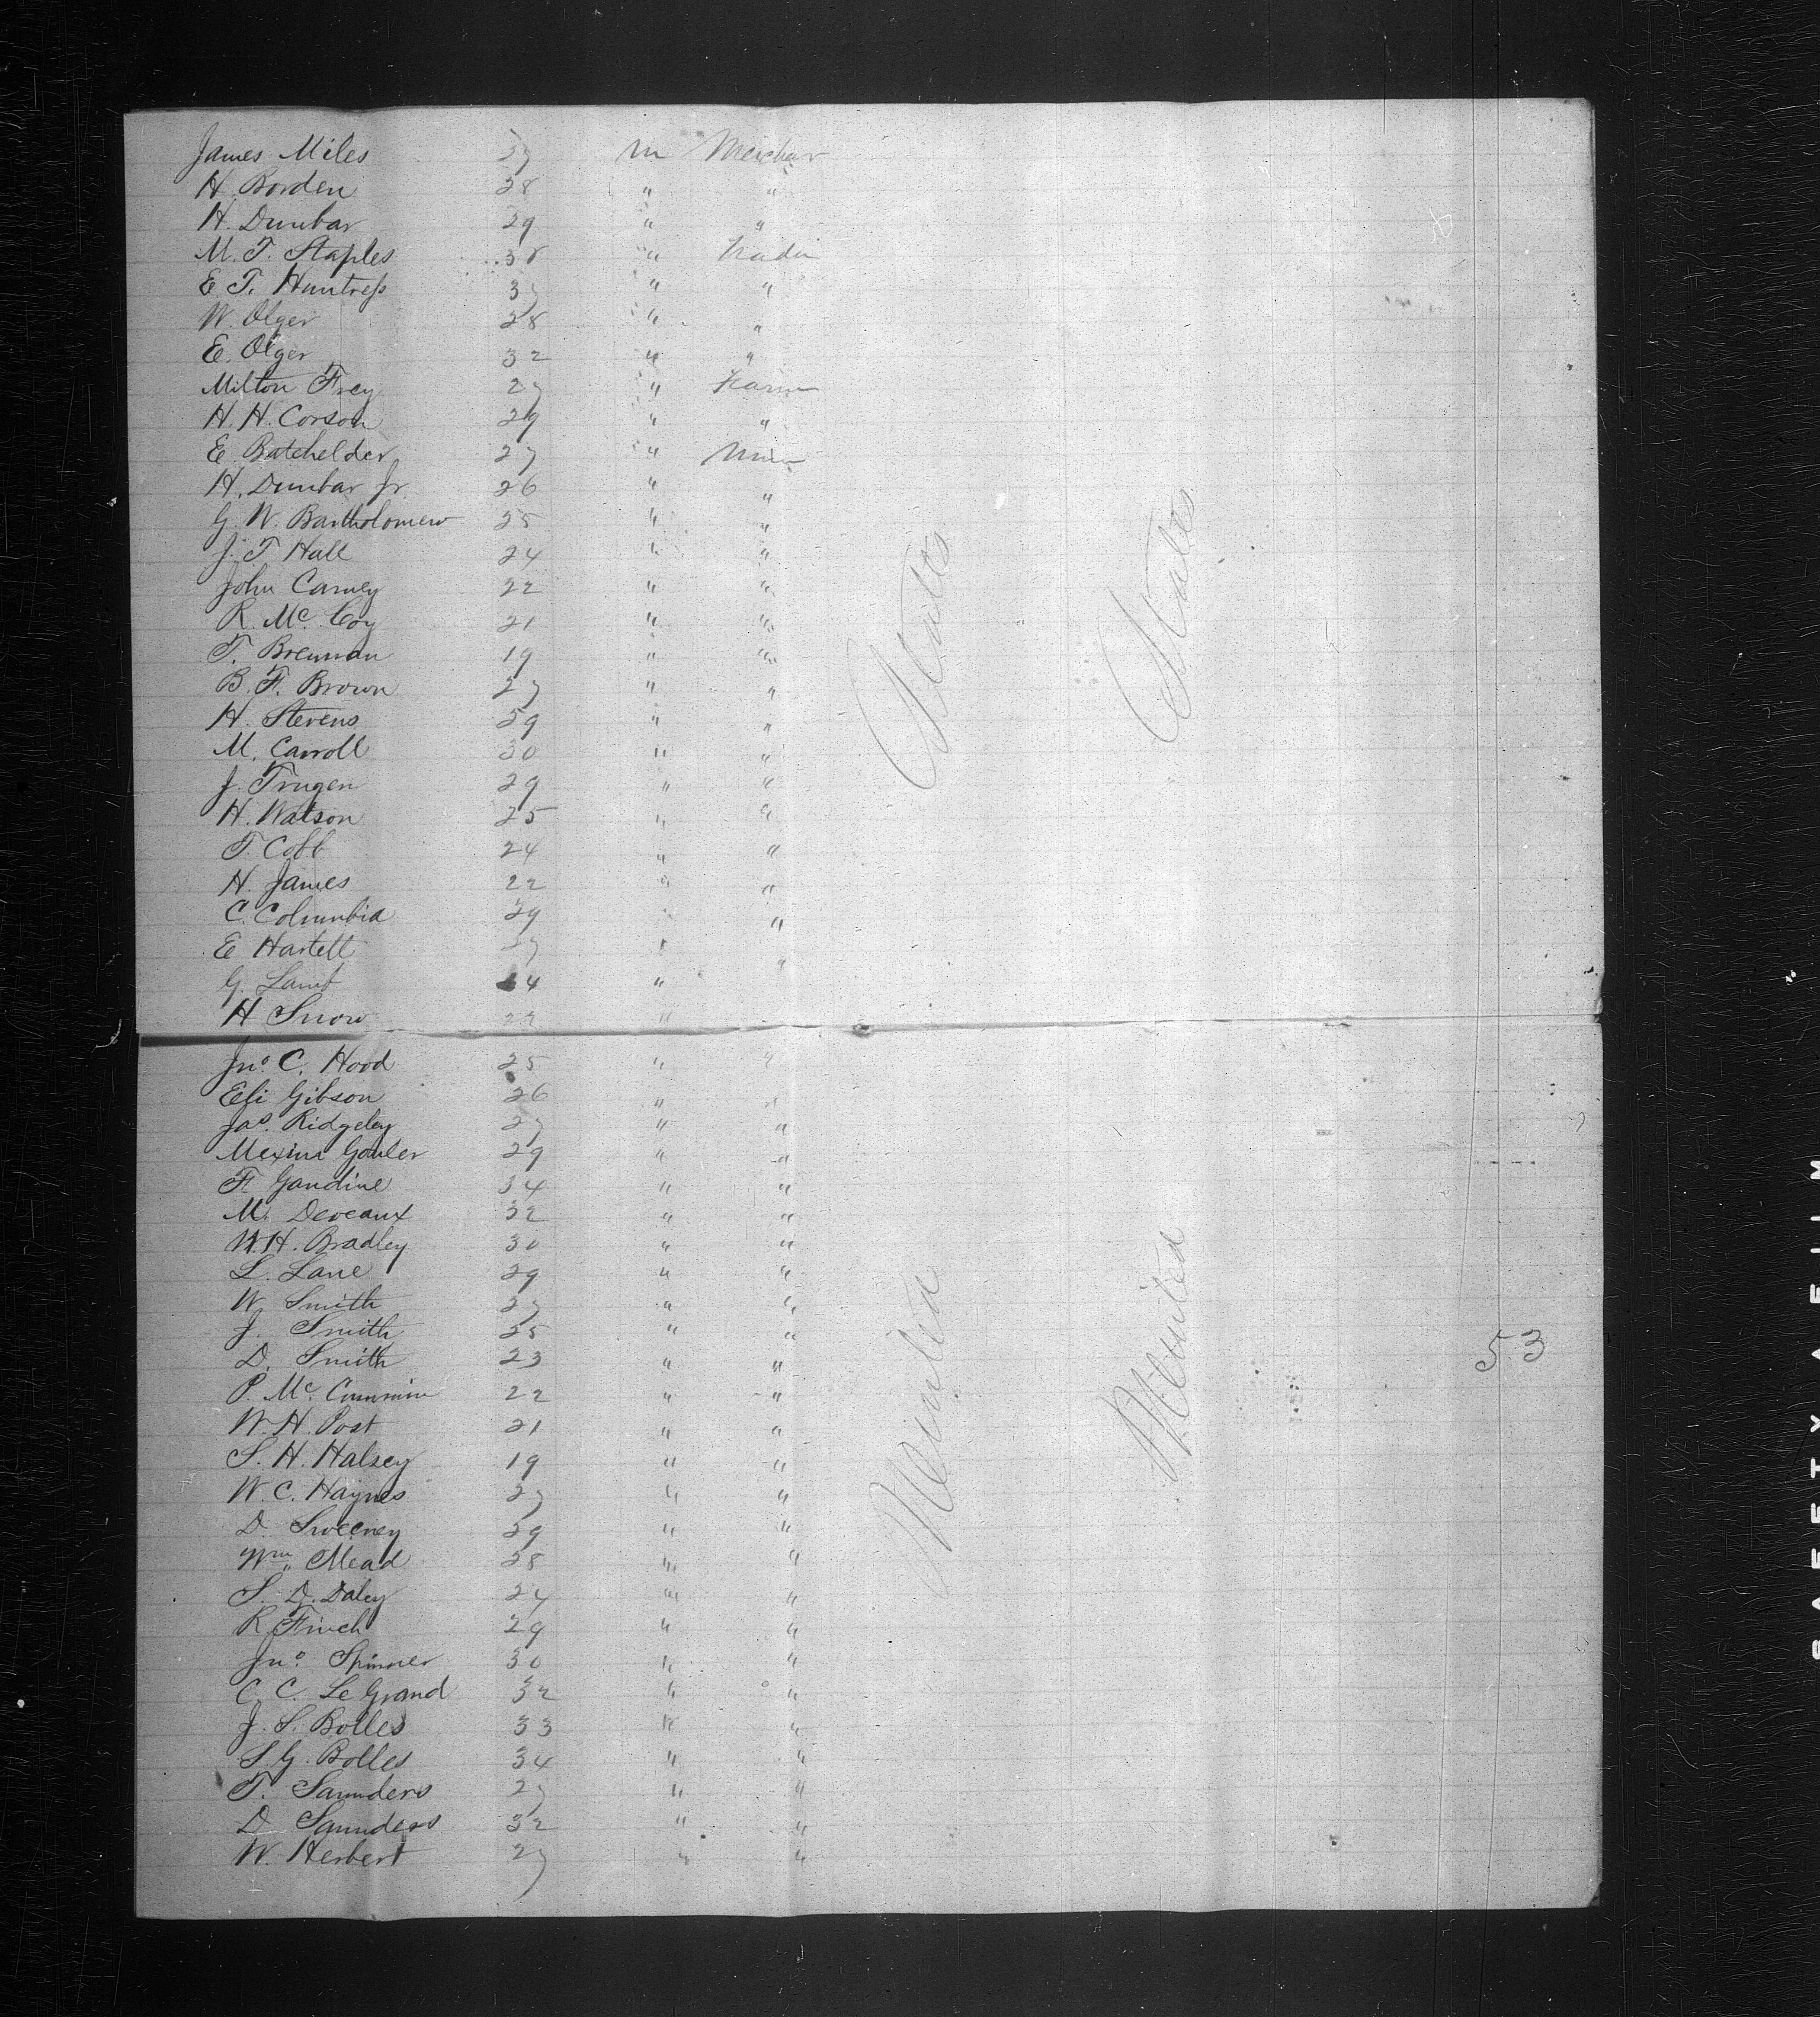 James Miles 37 m Merchan
H. Borden 28 " "
H. Dunbar 29 " "
M. T. Staples 38 " Trader
E. T. Huntress 37 " "
W. Olger 28 " "
E. Olger 32 " "
Milton Frey 27 " Farm
H. H. Corson 29 " "
E. Batchelder 27 " Miner
H. Dunbar Jr. 26 " "
G. W. Bartholomew 25 " "
J. T. Hall 24 " "
John Carney 22 " "
R. Mc. Coy 21 " "
T. Brennan 19 " "
B. F. Brown 27 " "
H. Stevens 29 " "
M. Carroll 30 " "
J. Trugen 29 " "
H. Watson 25 " "
T. Cobb 24 " "
H. James 22 " "
C. Columbia 29 " "
E Hartett 27 " "
G. Lamb 24 "
H Snow 29 "
Jno. C. Hood 25 " "
Eli Gibson 26 " "
Jas. Ridgeley 27 " "
Mexim Gouler 29 " "
F. Gandine 34 " "
M. Deveaux 32 " "
W. H. Bradley 30 " "
L. Lane 29 " "
W. Smith 27 " "
J. Smith 25 " "
D. Smith 23 " "
P. Mc. Cummin 22 " "
W. H. Post 21 " "
S. H. Halsey 19 " "
W. C. Haynes 27 " "
D. Sweeney 29 " "
Wm. Mead 28 " "
S. D. Daley 24 " "
R. Finch 29 " "
Jno. Spinner 30 " "
C. C. Le Grand 32 " "
J. S. Bolles 33 " "
S. G. Bolles 34 " "
T. Saunders 27 " "
D. Saunders 32 " "
W. Herbert 27 " "
United States
United States
53
SAFETY
FILM